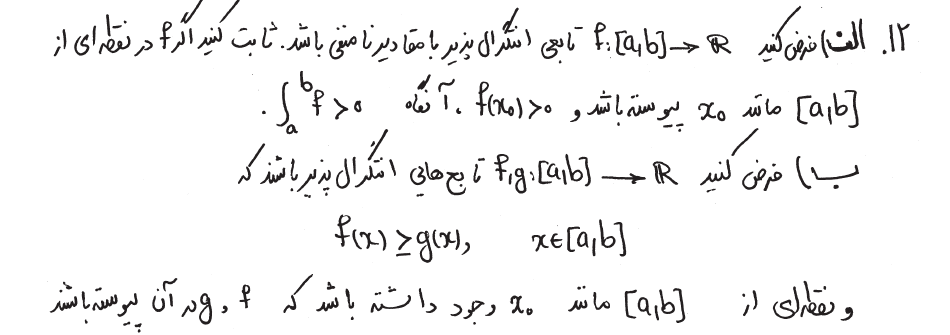 ۱۲. الف) فرض کنید f:[a,b]→ℝ تابعی انتگرال پذیر با مقادیر نامنفی باشد. ثابت کنید اگر f در نقطه‌ای از
[a,b] مانند x₀ پیوسته باشد و f(x₀)>0، آنگاه ∫ₐᵇ f>0.
ب) فرض کنید f,g:[a,b]→ℝ تابع‌هایی انتگرال پذیر باشند که
f(x)≥g(x), x∈[a,b]
و نقطه‌ای از [a,b] مانند x₀ وجود داشته باشد که f و g در آن پیوسته باشند